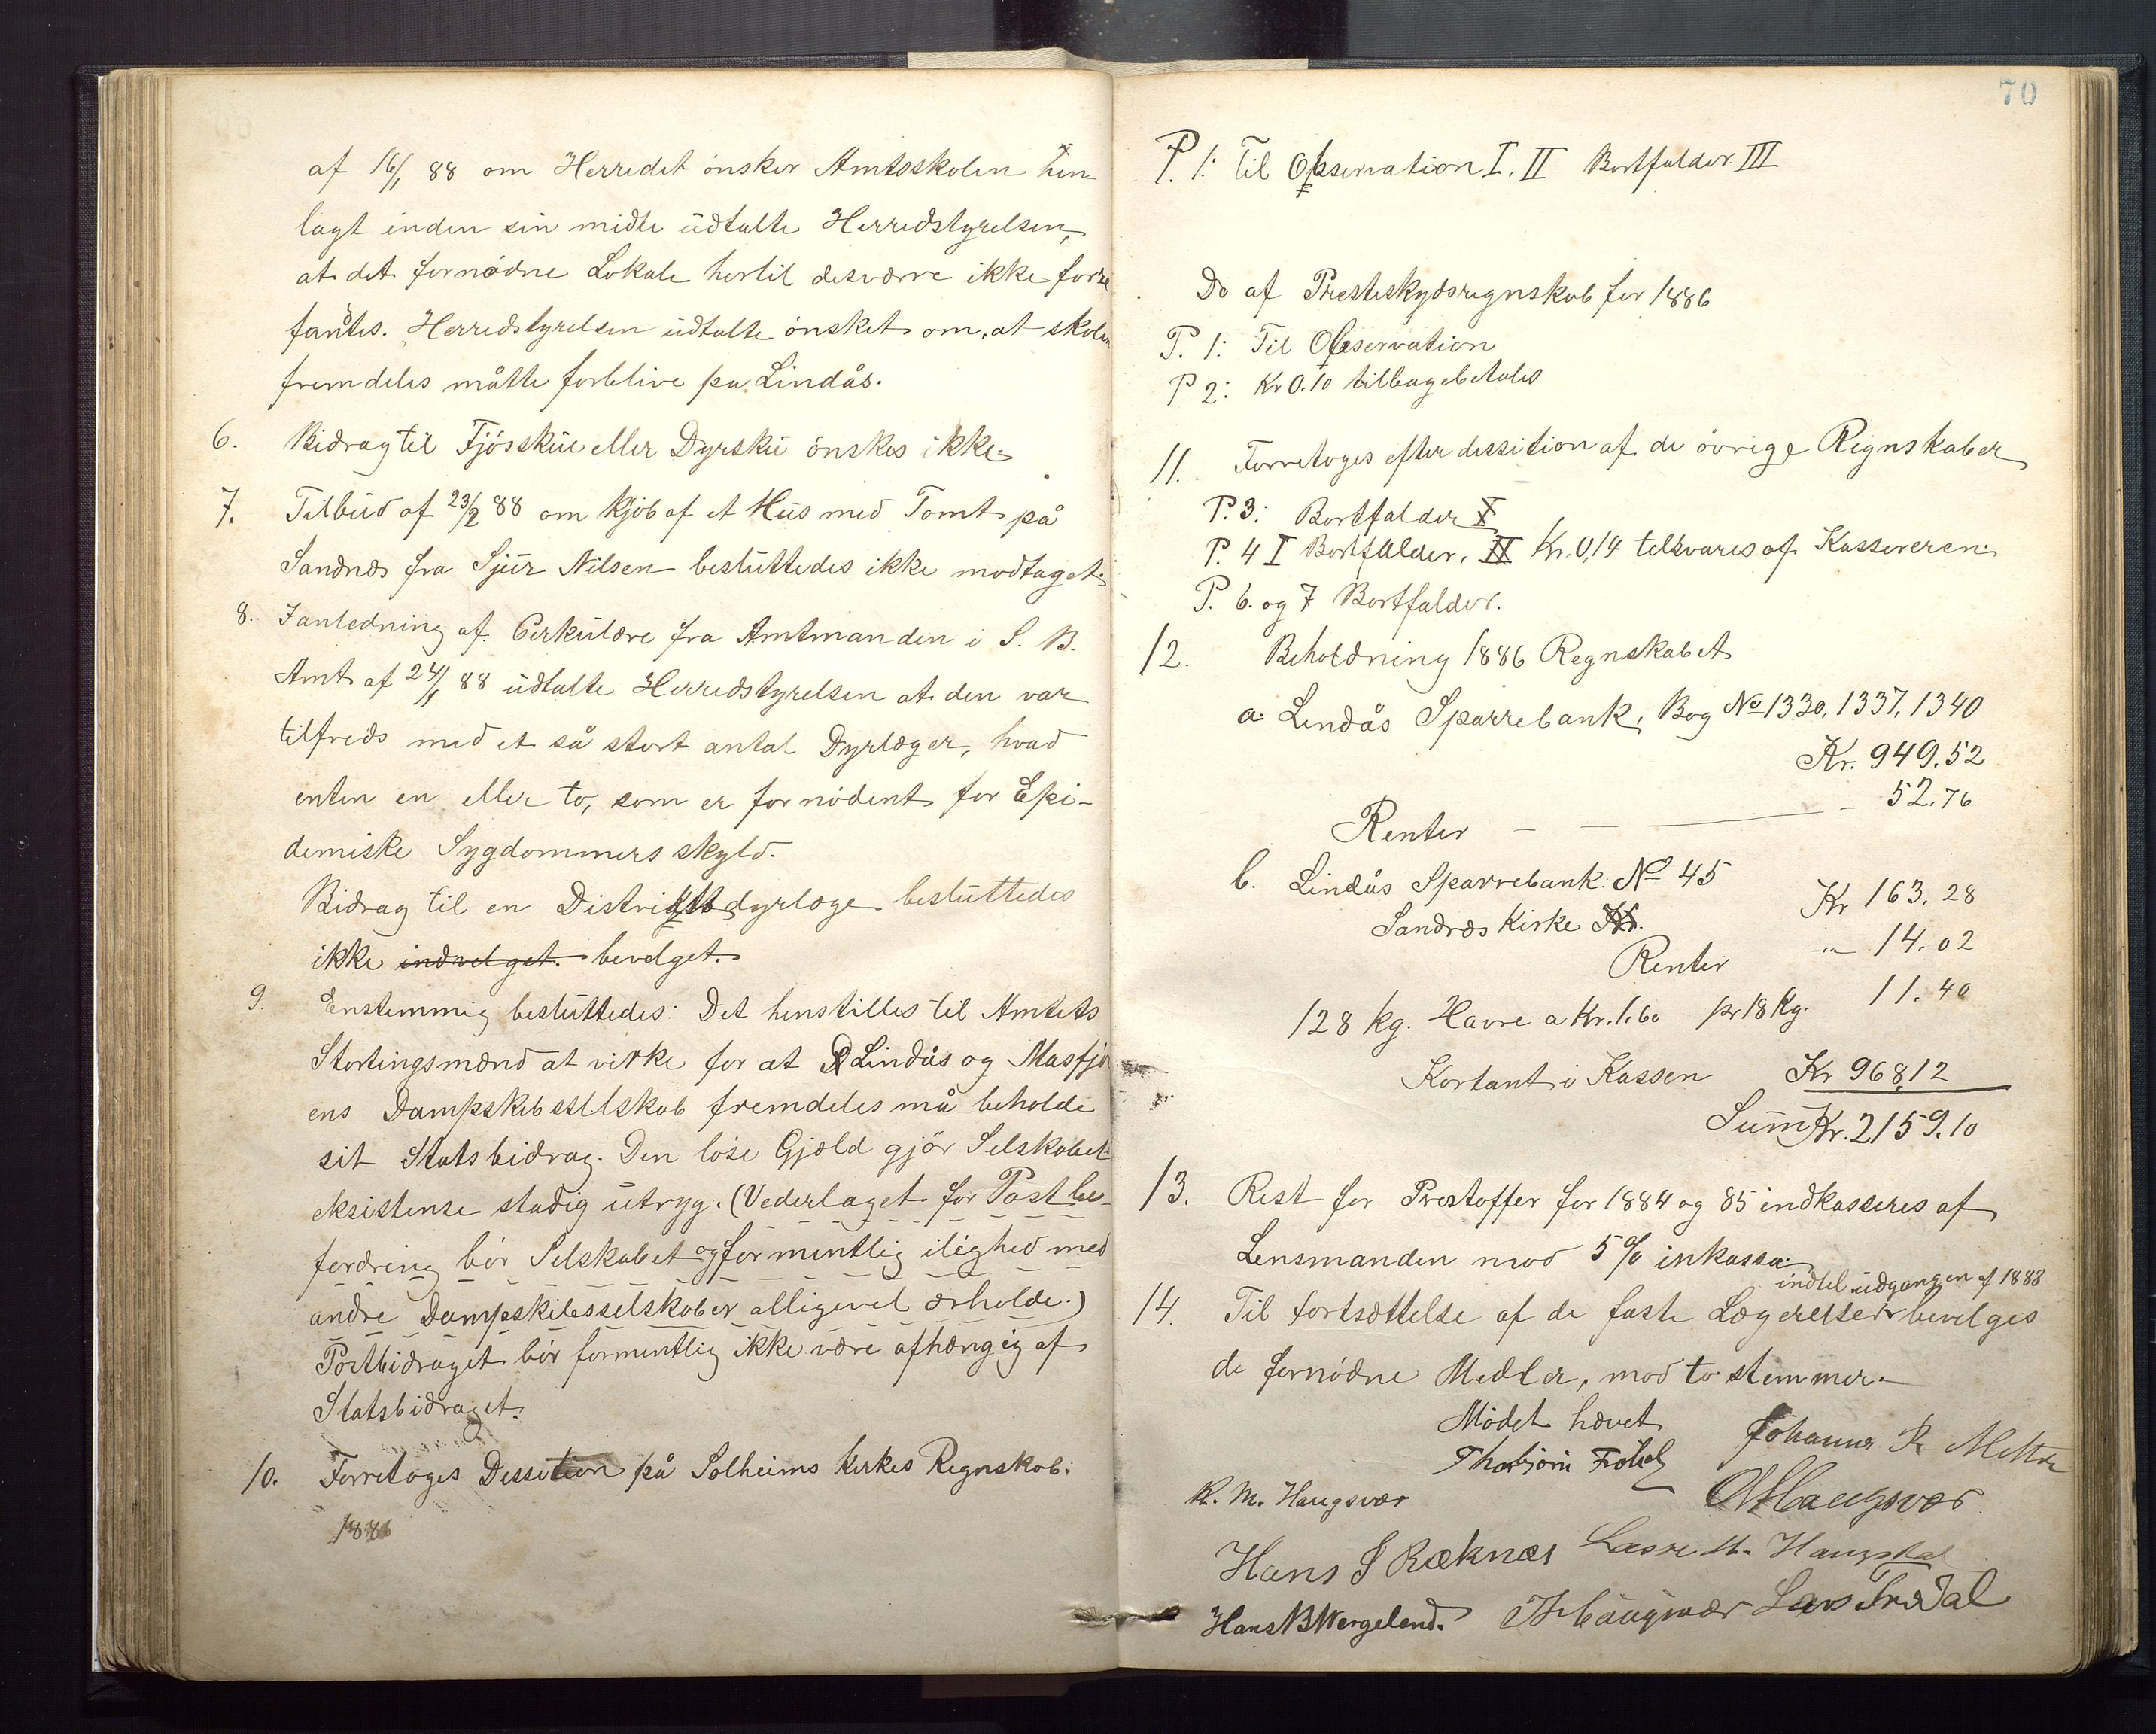 af 16/1 88 om Herredet ønsker Amtsskolen hen-
lagt inden sin midte udtalte Herredstyrelsen,
at det fornødne Lokale hertil desværre ikke
fantes. Herredstyrelsen udtalte ønsket om, at skolen
fremdeles måtte forblive på Lindås.
6. Bidrag til Fjøsskue eller Dyrsku ønskes ikke.
7. Tilbud af 23/2 88 om Kjøb af et Hus med Tomt på
Sandnes fra Sjur Nilsen besluttedes ikke modtaget.
8. I anledning af Cirkulære fra Amtmanden i S. B.
Amt af 24/1 88 udtalte Herredstyrelsen at den var
tilfreds med et så stort antal Dyrlæger, hvad
enten en eller to, som er fornødent for Epi-
demiske Sygdommers skyld.
Bidrag til en Distriktsdyrlæge besluttedes
ikke indvelget. bevelget.
9. Enstemmig besluttedes: Det henstilles til Amtets
Stortingsmænd at virke for at Lindås og Masfjor
ens Dampskibsselskab fremdeles må beholde
sit Statsbidrag. Den løse Gjæld gjør Selskabet
eksistense stadig utryg. (Vederlaget for Postbe-
fordring bør Selskabet og formentlig i lighed med
andre Dampskibsselskaber alligevel erholde.)
Postbidraget bør formentlig ikke være afhængig af
Statsbidraget.
10. Forretoges Dessition på Solheims Kirkes Regnskab.
1886
70
P. 1: Til Observation I. II Bortfalder III
Do af Presteskydsregnskab for 1886
P. 1: Til Observation
P 2: Kr 0.10 tilbagebetales
11. Forretoges efter dessition af de øvrige Regnskaber
P. 3: Bortfalder
P. 4 I Bortfalder. II Kr. 0,14 telsvares af Kassereren.
P. 6. og 7 Bortfalder.
12. Beholdning 1886 Regnskabet
a. Lindås Sparrebank, Bog No 1330, 1337, 1340
Kr. 949.52
Renter — — — 52.76
b. Lindås Sparrebank. No 45
Sandnes Kirke Kr. Kr 163.28
Renter — 14.02
128 kg. Havre a Kr. 1.60 pr 18 Kg. 11.40
Kontant i Kassen Kr 968,12
Sum Kr. 2159.10
13. Rest for Prestoffer for 1884 og 85 indkasseres af
Lensmanden mod 5 % inkasso.
indtil udgangen af 1888
14. Til fortsættelse af de faste Lægereiser bevelges
de fornødne Medler, mod to stemmer.
Mødet hævet
Johannes R Mettn
Thorbjørn Frotjold
K. M. Haugsvær
O Haugsvær
Hans S Ræknes
Lasse M. Haugsdal
Hans B Wergeland.
Haugsvær
Lars Fredal